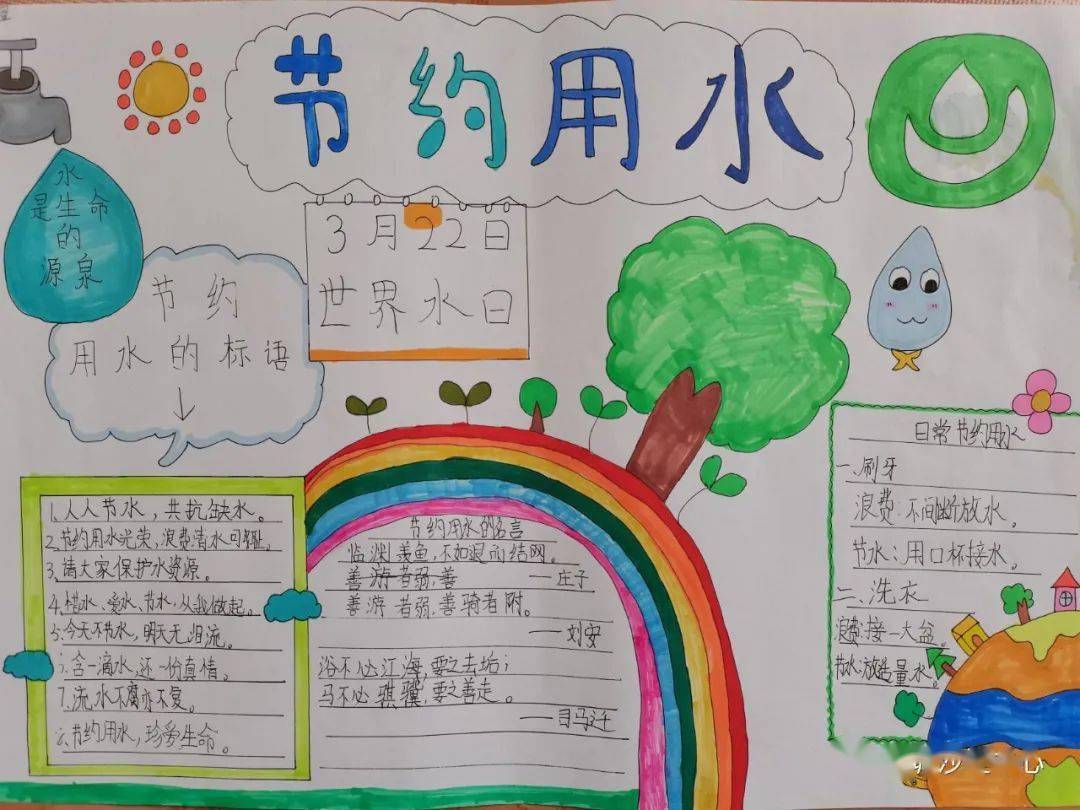 节约用水
水
是生命
的
源泉
3月22日
世界水日
节约
用水的标语
1.人人节水，共抗缺水。
2.节约用水光荣，浪费清水可耻。
3.请大家保护水资源。
4.惜水、爱水、节水，从我做起。
5.今天不节水，明天无泪流。
含一滴水，还一份真情。
7.流水不腐亦不复。
节约用水，珍爱生命。
节约用水的名言
临渊羡鱼，不如退而结网。
善游者弱，善——庄子
善游者弱，善骑者附。
——刘安
浴不必江海，要之去垢；
马不必骐骥，要之善走。
——司马迁
日常节约用水
一、刷牙
浪费：不间断放水。
节水：用口杯接水。
二、洗衣
浪费：接一大盆。
节水：放适量水。